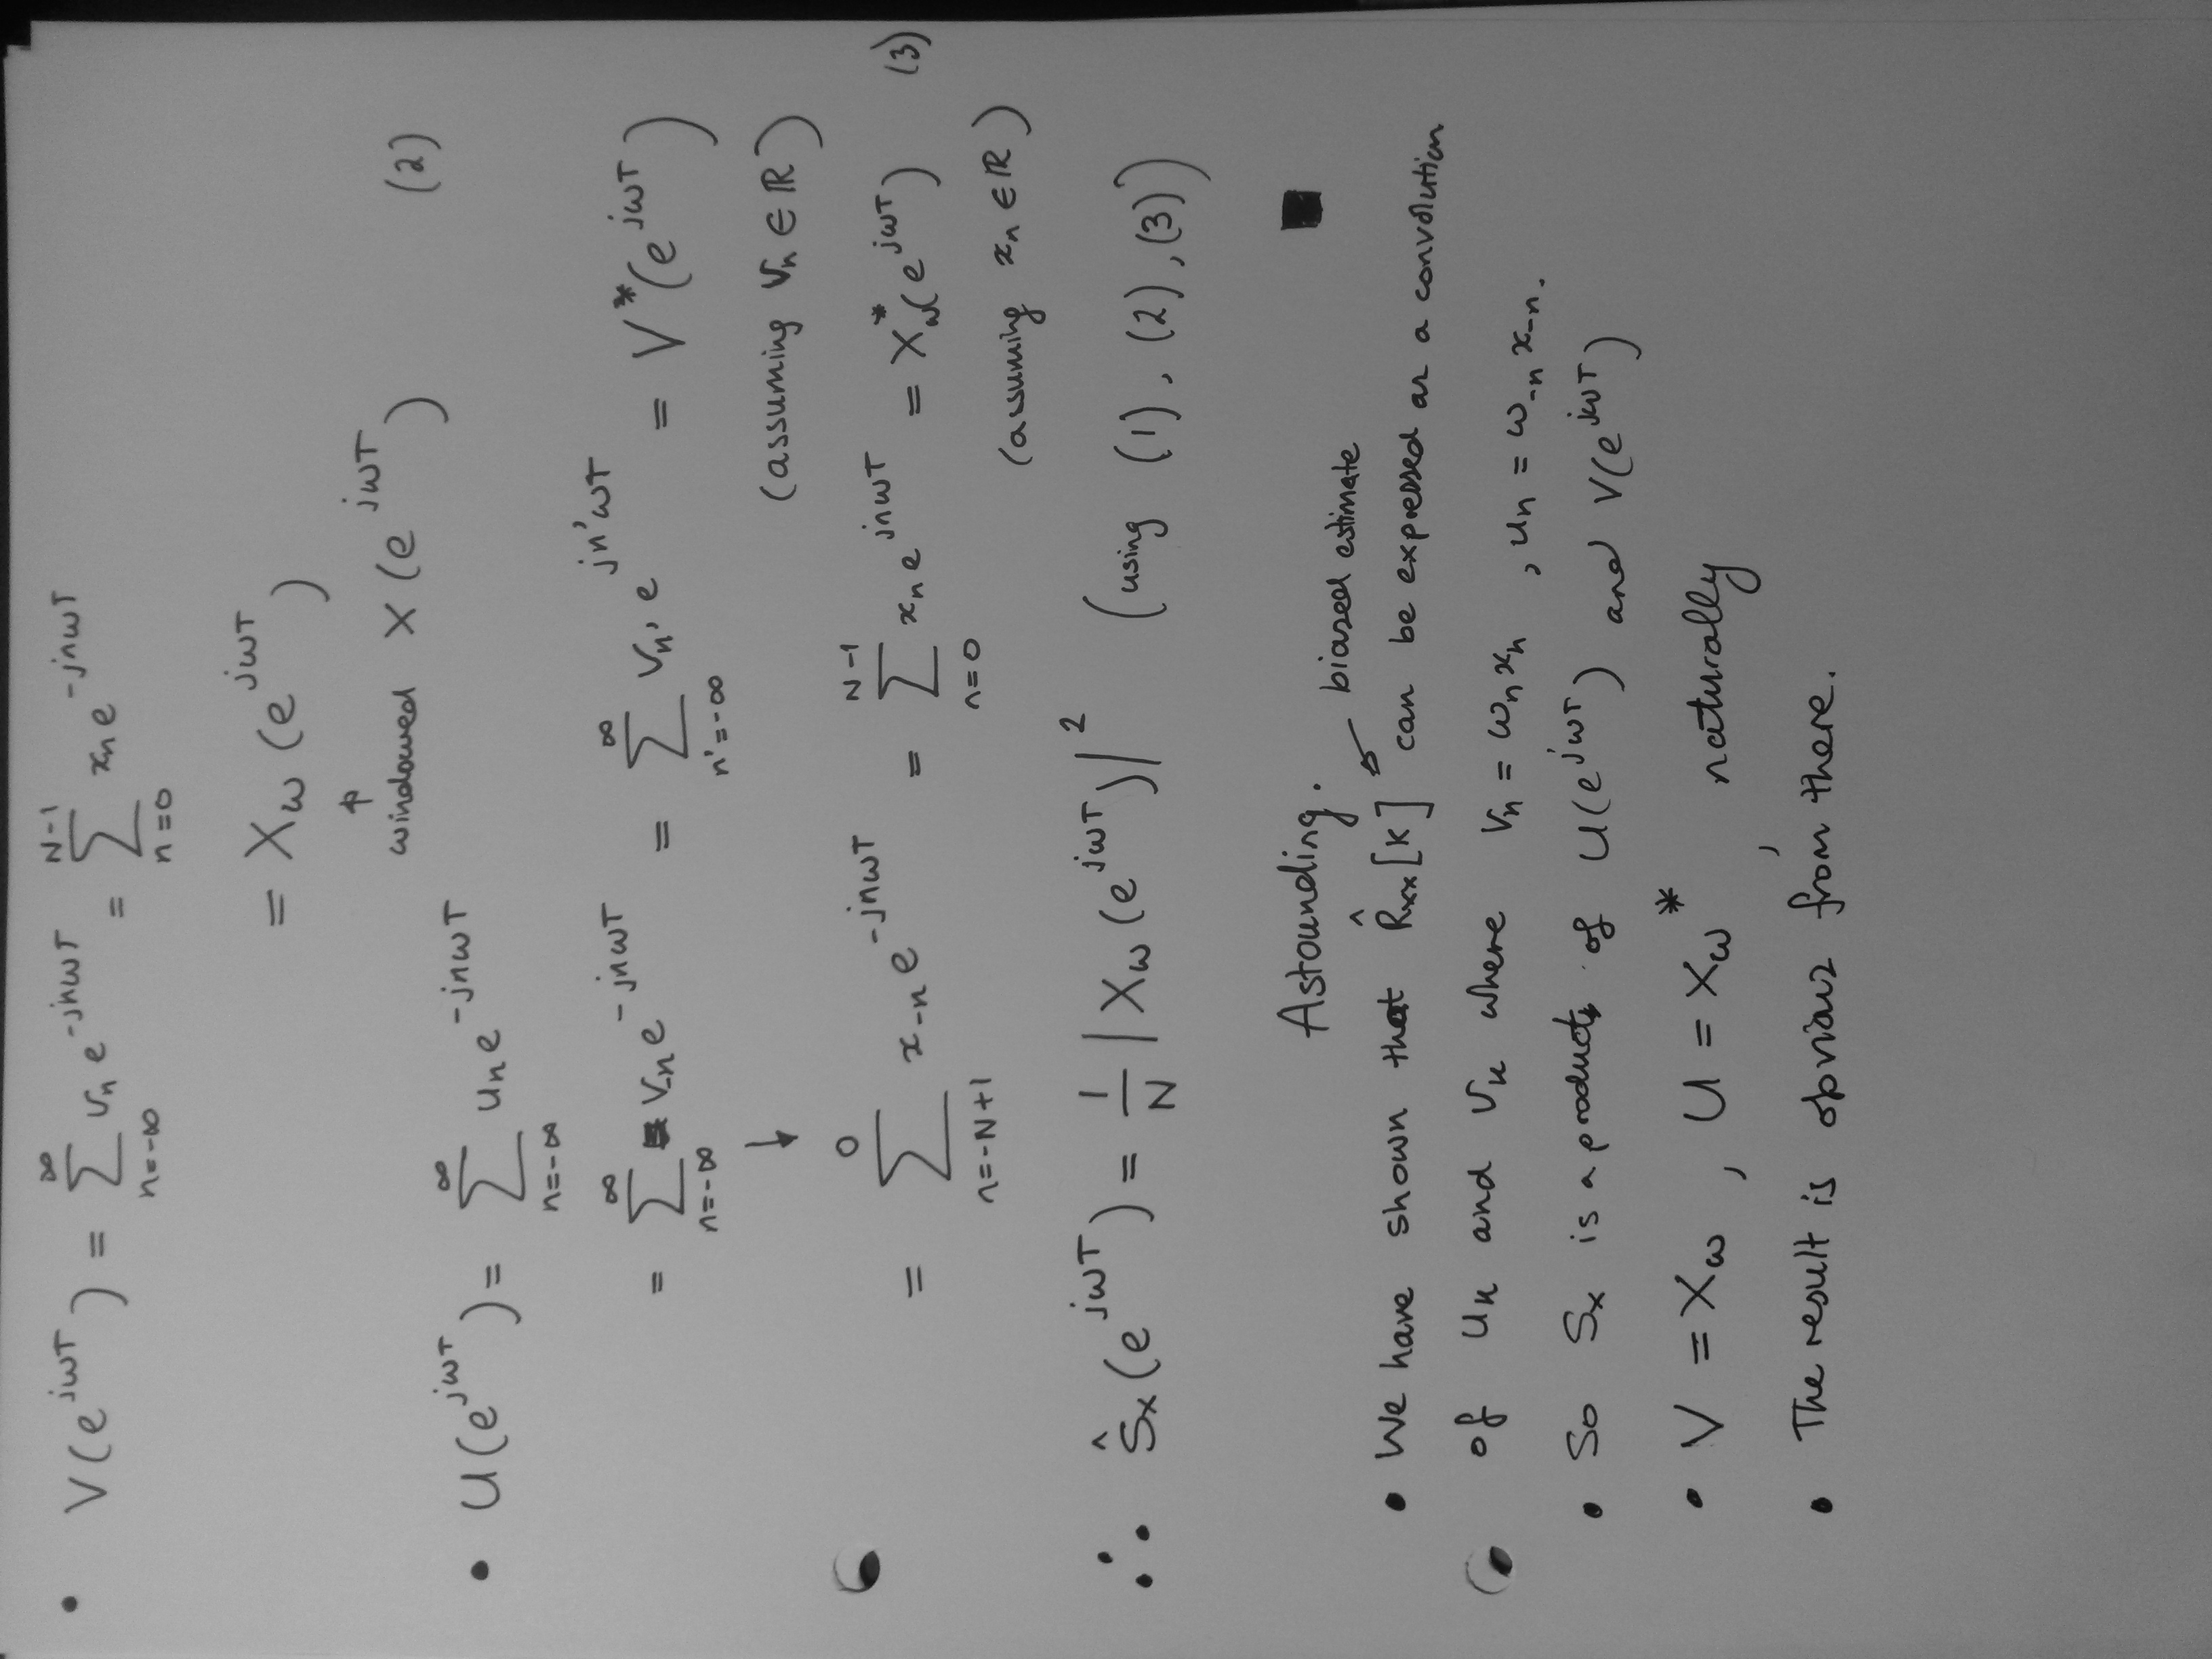 • V(e^{jωT}) = \sum_{n=-∞}^{∞} v_n e^{-jnωT} = \sum_{n=0}^{N-1} x_n e^{-jnωT}
= X_w(e^{jωT})
↑
windowed X(e^{jωT}) (2)
• U(e^{jωT}) = \sum_{n=-∞}^{∞} u_n e^{-jnωT}
= \sum_{n=-∞}^{∞} v_{-n} e^{-jnωT} = \sum_{n'=-∞}^{∞} v_{n'} e^{jn'ωT} = V^*(e^{jωT})
↓ (assuming v_n ∈ ℝ)
= \sum_{n=-N+1}^{0} x_{-n} e^{-jnωT} = \sum_{n=0}^{N-1} x_n e^{jnωT} = X_w^*(e^{jωT}) (3)
(assuming x_n ∈ ℝ)
∴ Ŝ_x(e^{jωT}) = \frac{1}{N} |X_w(e^{jωT})|^2 (using (1), (2), (3))
Astounding. ■
biased estimate
• We have shown that R̂_{xx}[k] can be expressed as a convolution
of u_k and v_k where v_n = w_n x_n, u_n = w_{-n} x_{-n}.
• So S_x is a product of U(e^{jωT}) and V(e^{jωT})
• V = X_w, U = X_w^*, naturally
• The result is obvious from there.